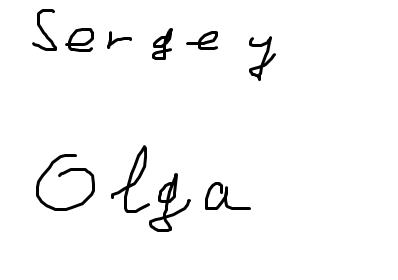 Sergey
Olga